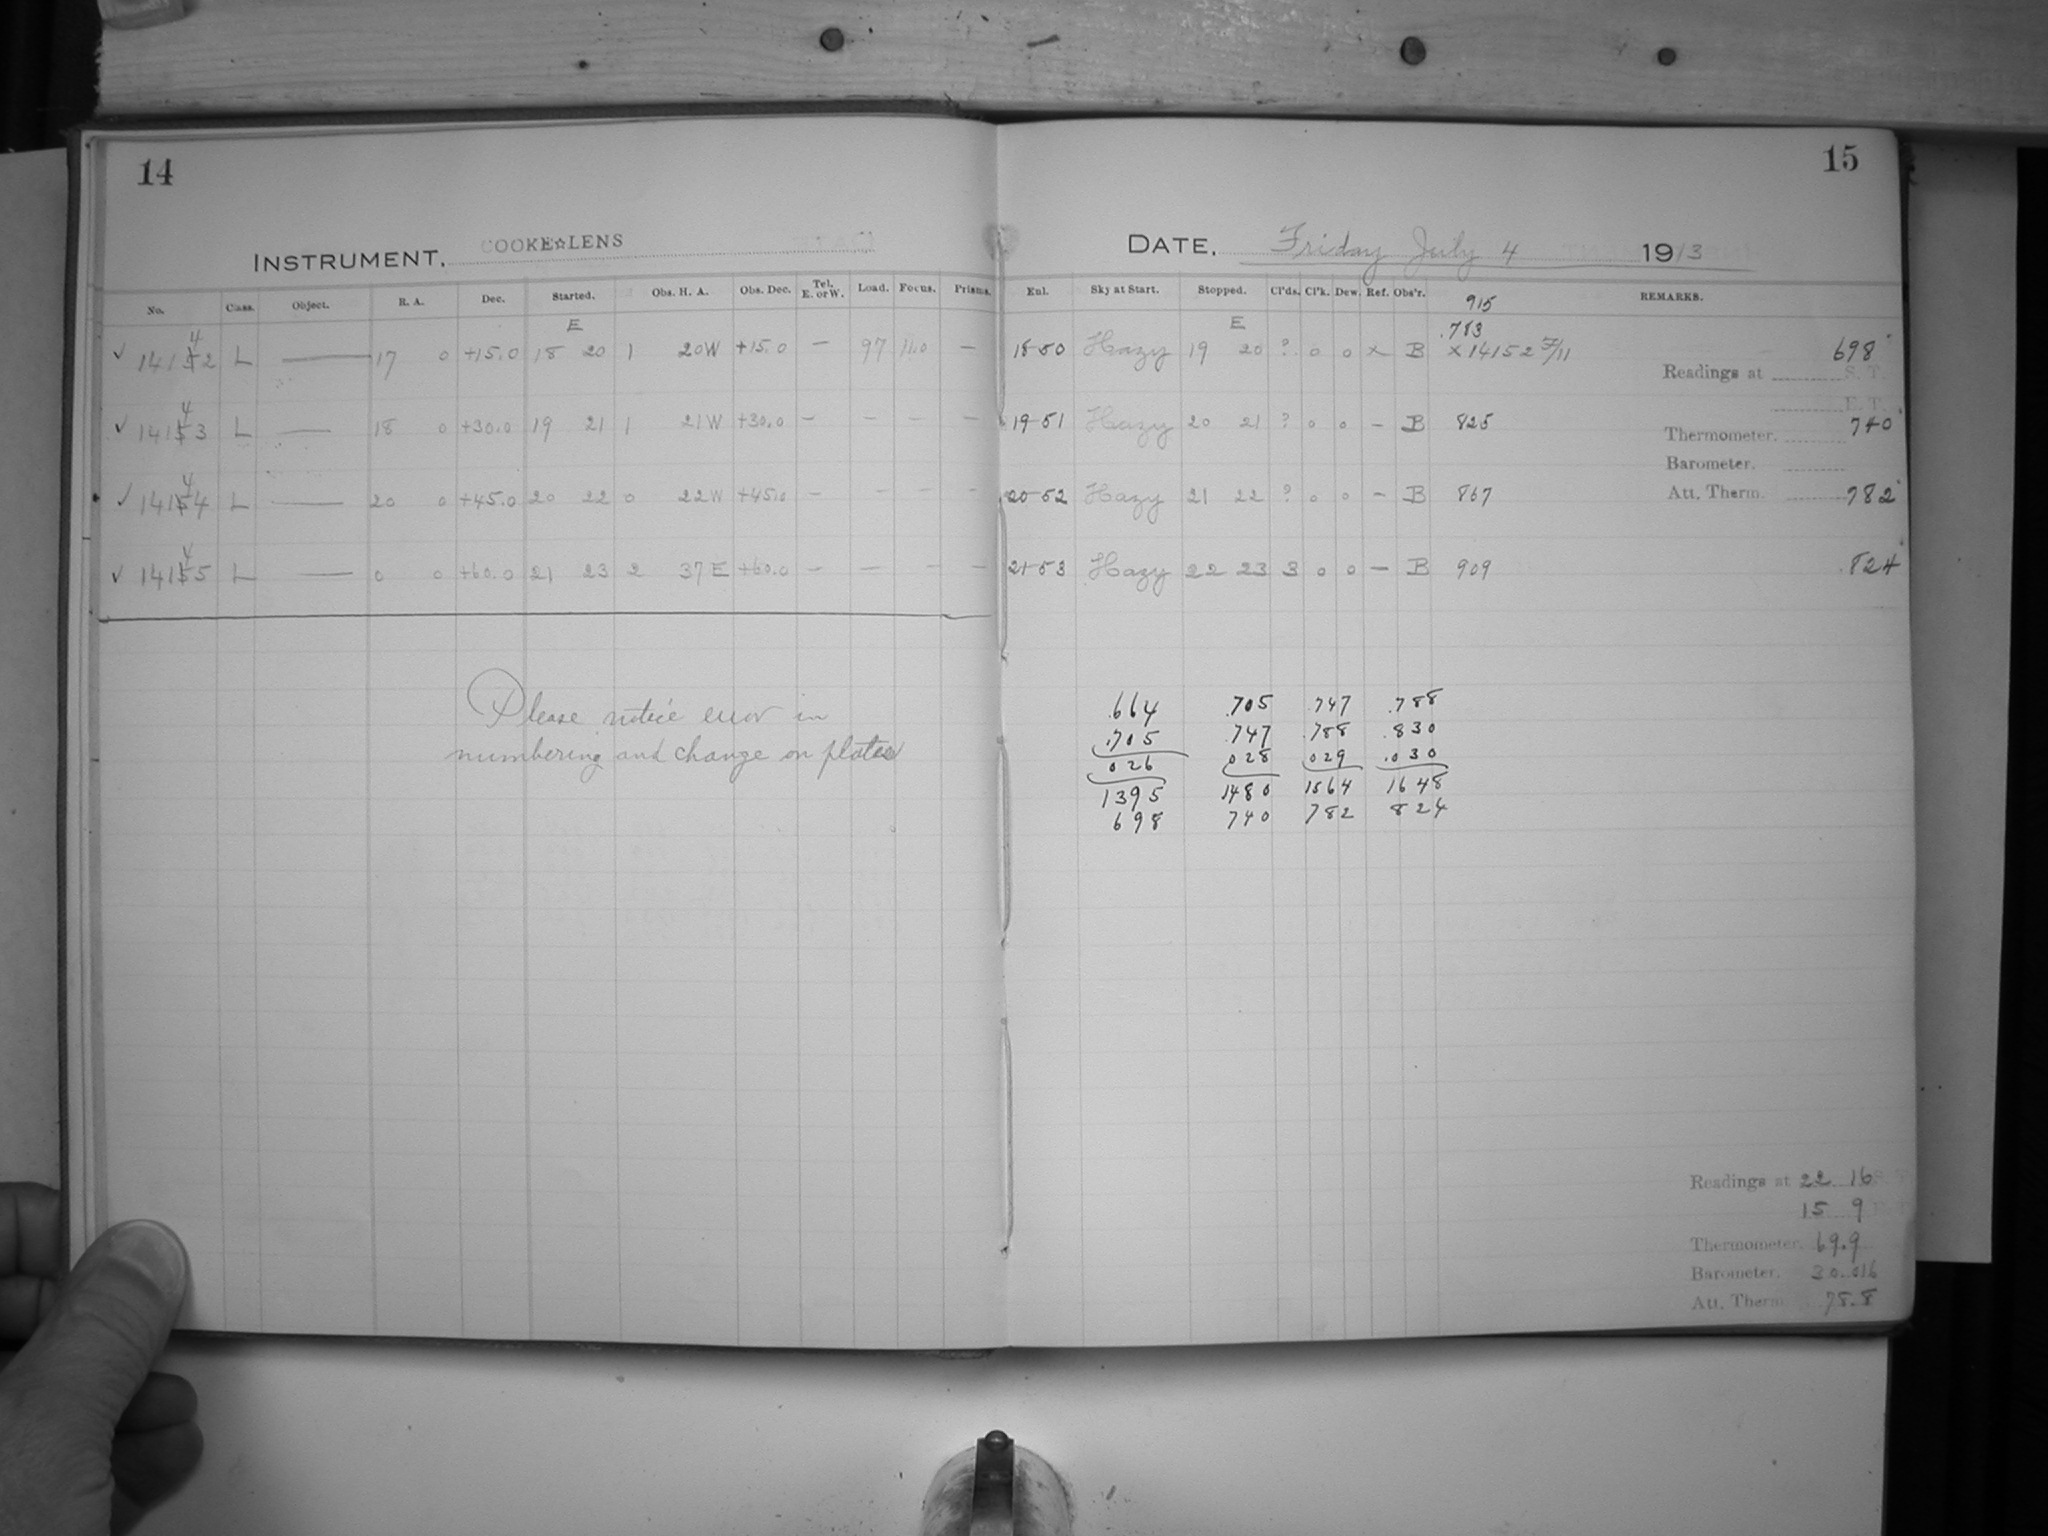 14
15
INSTRUMENT. COOKE☆LENS
DATE. Friday July 4 1913
No. Class. Object. R. A. Dec. Started. Obs. H. A. Obs. Dec. Tel. E. or W. Load. Focus. Prisms.
Enl. Sky at Start. Stopped. Cl'ds. Cl'k. Dew. Ref. Obs'r. REMARKS.
E
E 915
4
.783
✓ 14152 L — 17 0 +15.0 18 20 1 20W +15.0 — 97 11.0 —
18 50 Hazy 19 20 ? 0 0 x B x 14152 698
Readings at S. T.
E. T.
4
✓ 14153 L — 18 0 +30.0 19 21 1 21W +30.0 — — — —
19 51 Hazy 20 21 ? 0 0 — B 825 740
Thermometer.
Barometer.
4
✓ 14154 L — 20 0 +45.0 20 22 0 22W +45.0 — — — —
20 52 Hazy 21 22 ? 0 0 — B 867
Att. Therm. 782
4
✓ 14155 L — 0 0 +60.0 21 23 2 37E +60.0 — — — —
21 53 Hazy 22 23 3 0 0 — B 909 .824
Please notice error in
numbering and change on plates
.664 .705 .747 .788
.705 .747 .788 .830
026 028 029 .030
1395 1480 1564 1648
698 740 782 824
Readings at 22 16
15 9
Thermometer. 69.9
Barometer. 30.016
Att. Therm. 78.8